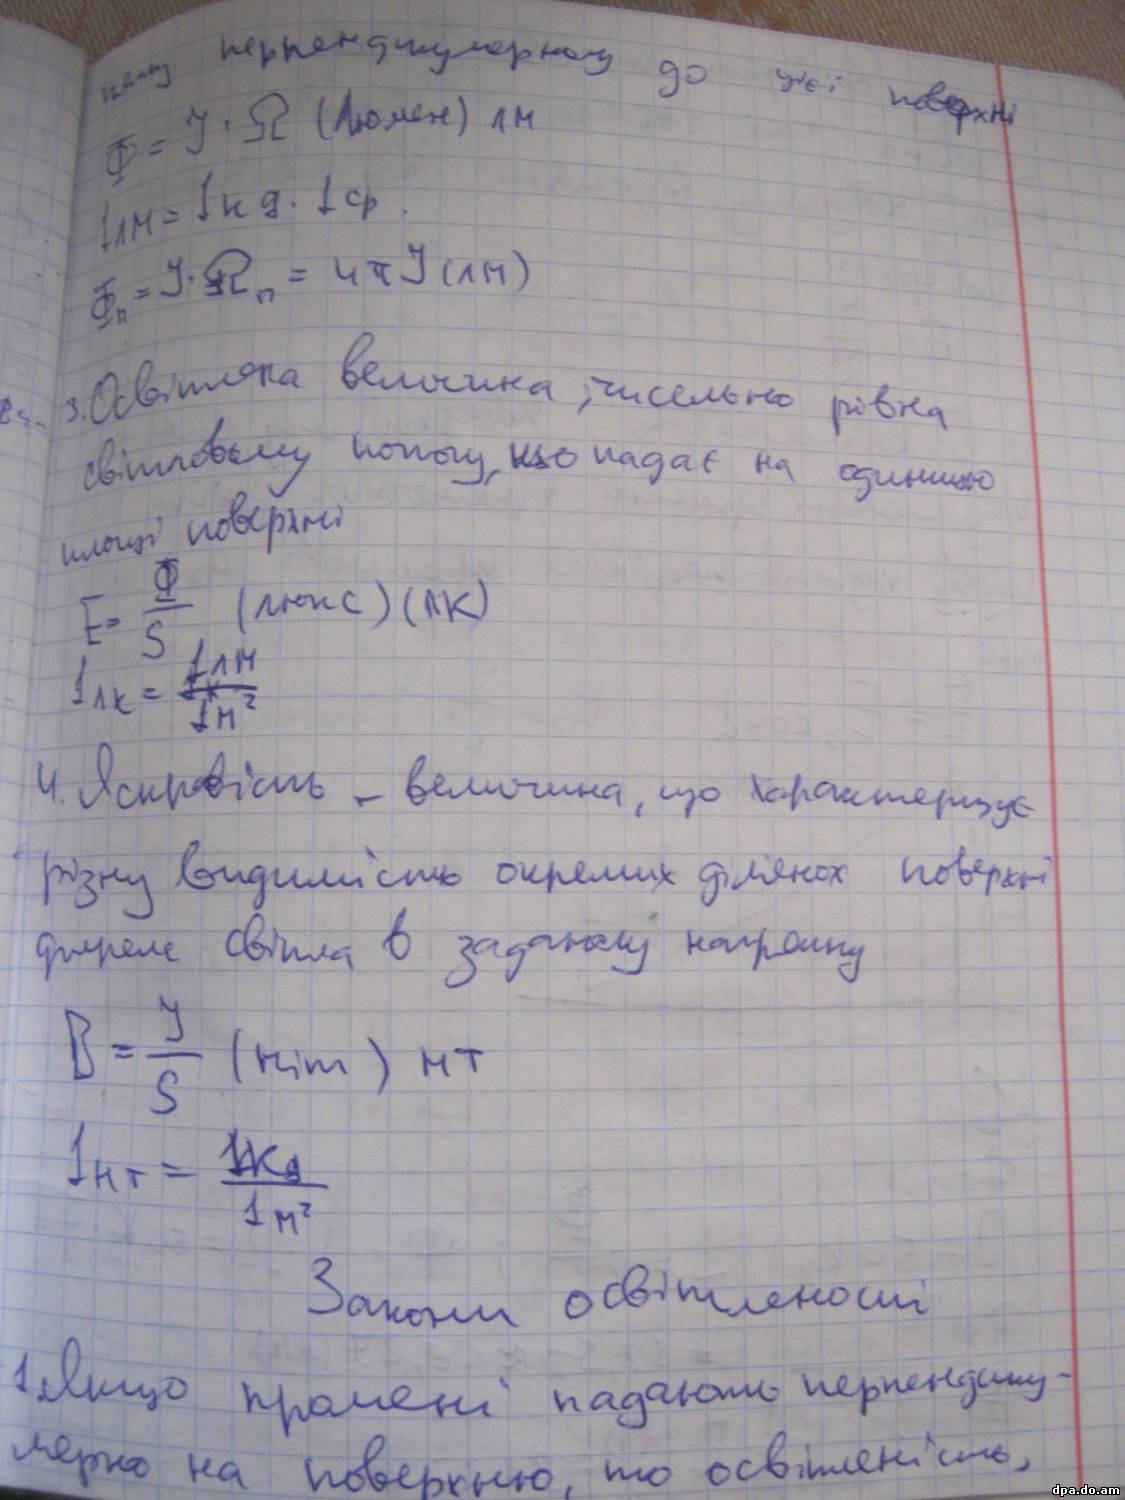 перпендикулярному до цієї поверхні
Ф = J · Ω (Люмен) лм
1лм = 1кд · 1ср.
Фп = J · Ωп = 4πJ (лм)
3. Освітлена величина, чисельно рівна
світловому потоку, що падає на одиницю
площі поверхні
E = Ф/S (люкс) (лк)
1лк = 1лм/1м²
4. Яскравість - величина, що характеризує
різну видимість окремих ділянок поверхні
джерел світла в заданому напрямку
B = J/S (ніт) нт
1нт = 1кд/1м²
Закони освітленості
1. Якщо промені падають перпендику-
лярно на поверхню, то освітленість,
dpa.do.am